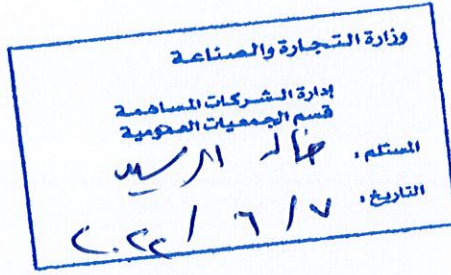 وزارة التجارة والصناعة
إدارة الشركات المساهمة
قسم الجمعيات العمومية
المستلم . خالد الرشيد
التاريخ . ٧ / ٦ / ٢٠٢٢